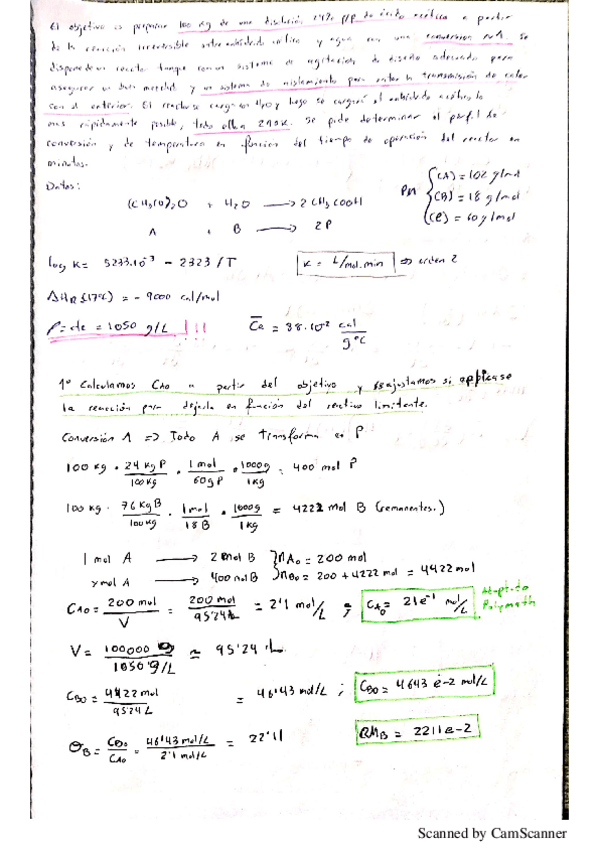 El objetivo es preparar 100 Kg de una disolución 24% p/p de ácido acético a partir
de la reacción irreversible entre anhídrido acético y agua con una conversión
se dispone de un reactor tanque con un sistema de agitación de diseño adecuado para
asegurar un buen mezclado y un sistema de aislamiento para evitar la transmisión de calor
con el exterior. El reactor se carga con H2O y luego se cargará el anhídrido acético, lo
mas rápidamente posible, todo ello a 290K. Se pide determinar el perfil de
conversión y de temperatura en función del tiempo de operación del reactor en
minutos.
Datos:
PM { (A) = 102 g/mol
(B) = 18 g/mol
(P) = 60 g/mol
(CH3CO)2O + H2O → 2 CH3COOH
A + B → 2P
log K = 5233·10^-3 - 2323/T
K = L/mol.min ⇒ orden 2
ΔHR (17ºC) = -9000 cal/mol
ρ = cte = 1050 g/L !!!
Ce = 38·10^-2 cal/gºC
1º Calculamos CAO a partir del objetivo y reajustamos si applicase
la reacción para dejarla en función del reactivo limitante.
Conversión 1 => Todo A se transforma en P
100 kg · 24 kg P/100kg · 1 mol/60g P · 1000g/1kg = 400 mol P
100 kg · 76 Kg B/100kg · 1mol/18 B · 1000g/1kg = 4222 mol B (remanentes.)
1 mol A → 2 mol B } nA0 = 200 mol
x mol A → 400 mol B } nB0 = 200 + 4222 mol = 4422 mol
CAO = 200 mol/V = 200 mol/95'24 L = 2'1 mol/L = ; CA0 = 21e^-1 mol/L
Adapt. to Polymath
V = 100000 g/1050 g/L ≈ 95'24 L
CBO = 4422 mol/95'24 L = 46'43 mol/L ; CBO = 4643 e-2 mol/L
ΘB = CBO/CAO = 46'43 mol/L/2'1 mol/L = 22'11
= 2211e-2
Scanned by CamScanner